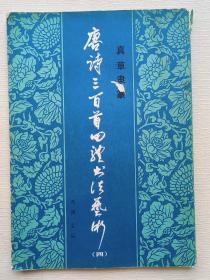 真草隶篆
唐诗三百首四体书法艺术
（四）